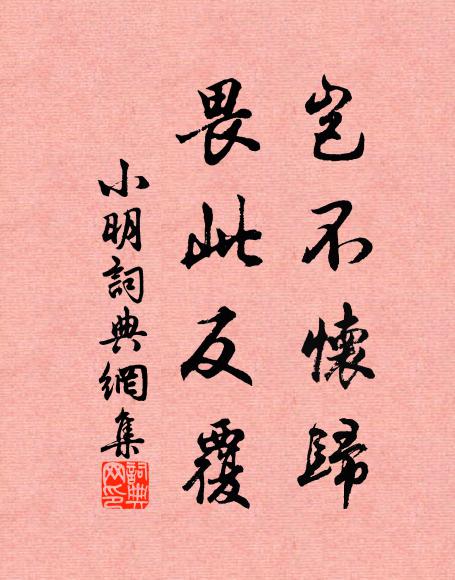 豈不懷歸
畏此反覆
小明詞典網集
詞典网印